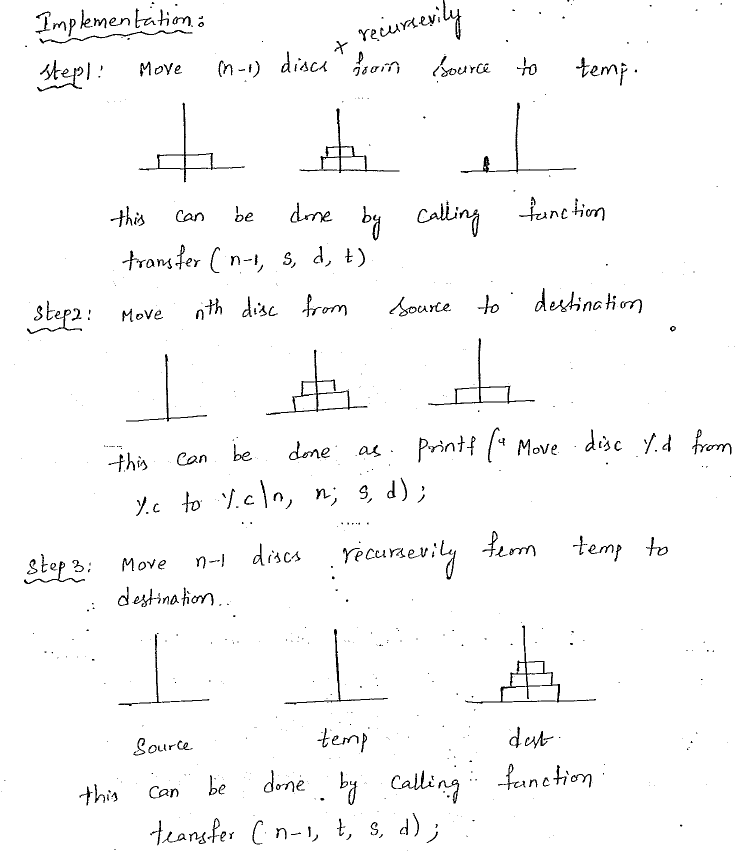 Implementation:
Step1: Move (n-1) discs x recursevily from source to temp.
this can be done by calling function
transfer ( n-1, s, d, t)
Step2: Move nth disc from source to destination
This can be done as. Printf (" Move disc %d from
%c to %c\n, n; s, d) ;
Step 3: Move n-1 discs recursevily from temp to
destination..
Source temp dest
this can be done by calling function
transfer ( n-1, t, s, d) ;